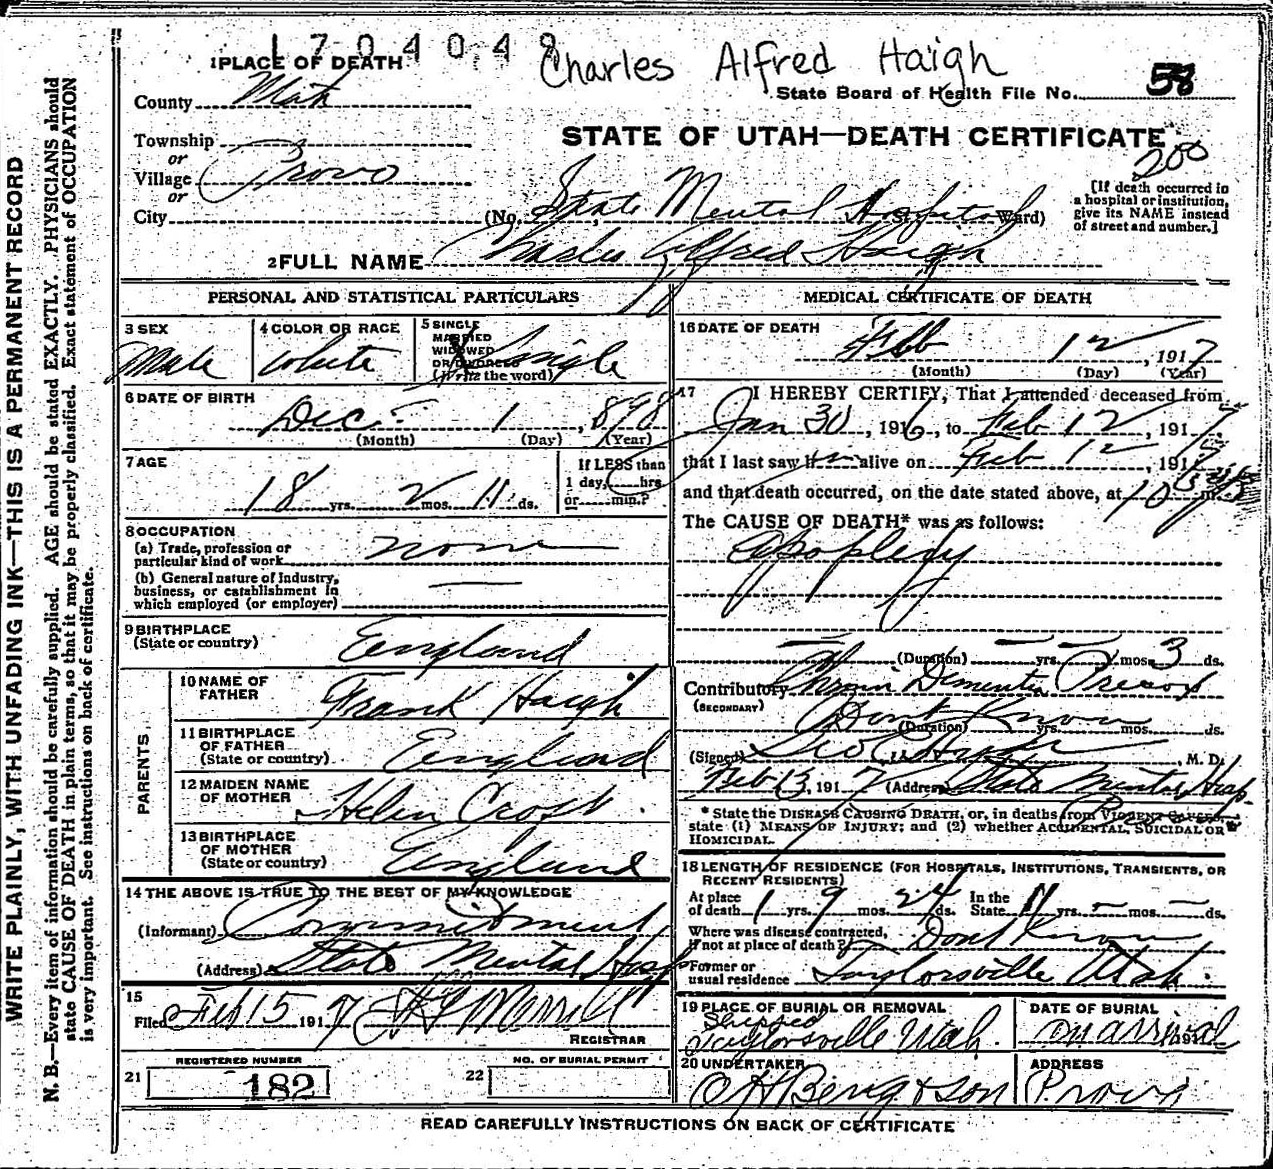 1704048
Charles Alfred Haigh
1 PLACE OF DEATH
State Board of Health File No. 58
County Utah
STATE OF UTAH—DEATH CERTIFICATE
200
Township
or
Village Provo
or
City (No. State Mental Hospital Ward)
[If death occurred in
a hospital or institution,
give its NAME instead
of street and number.]
2 FULL NAME Charles Alfred Haigh
PERSONAL AND STATISTICAL PARTICULARS
3 SEX Male
4 COLOR OR RACE White
5 SINGLE
MARRIED
WIDOWED
OR DIVORCED
(Write the word) Single
6 DATE OF BIRTH
Dec. 1, 1898
(Month) (Day) (Year)
7 AGE
18 yrs. 2 mos. 11 ds.
If LESS than
1 day, hrs
or min.?
8 OCCUPATION
(a) Trade, profession or
particular kind of work none
(b) General nature of Industry,
business, or establishment in
which employed (or employer) —
9 BIRTHPLACE
(State or country) England
PARENTS
10 NAME OF
FATHER Frank Haigh
11 BIRTHPLACE
OF FATHER
(State or country) England
12 MAIDEN NAME
OF MOTHER Helen Cross
13 BIRTHPLACE
OF MOTHER
(State or country) England
14 THE ABOVE IS TRUE TO THE BEST OF MY KNOWLEDGE
(Informant) Commitment
(Address) State Mental Hosp
15
Filed Feb 15 1917 Merrill
REGISTRAR
REGISTERED NUMBER
21 182
NO. OF BURIAL PERMIT
22
MEDICAL CERTIFICATE OF DEATH
16 DATE OF DEATH
Feb 12, 1917
(Month) (Day) (Year)
17 I HEREBY CERTIFY, That I attended deceased from
Jan 30, 1916, to Feb 12, 1917
that I last saw him alive on Feb 12, 1917
and that death occurred, on the date stated above, at 10 m.
The CAUSE OF DEATH* was as follows:
Apoplexy
(Duration) — yrs. — mos. 3 ds.
Contributory Chronic Dementia Precox
(SECONDARY)
Dont Know
(Duration) yrs. mos. ds.
(Signed) Geo , M. D.
Feb 13, 1917 (Address) State Mental Hosp.
* State the DISEASE CAUSING DEATH, or, in deaths from VIOLENT CAUSES,
state (1) MEANS OF INJURY; and (2) whether ACCIDENTAL, SUICIDAL OR
HOMICIDAL.
18 LENGTH OF RESIDENCE (FOR HOSPITALS, INSTITUTIONS, TRANSIENTS, OR
RECENT RESIDENTS)
At place
of death 1 yrs. 9 mos. 24 ds. In the
State 11 yrs. — mos. — ds.
Where was disease contracted,
if not at place of death? Dont Know
Former or
usual residence Taylorsville Utah.
19 PLACE OF BURIAL OR REMOVAL
Shipped
Taylorsville Utah.
DATE OF BURIAL
on arrival 191
20 UNDERTAKER
Berg & Son
ADDRESS
Provo
READ CAREFULLY INSTRUCTIONS ON BACK OF CERTIFICATE
WRITE PLAINLY, WITH UNFADING INK—THIS IS A PERMANENT RECORD
N. B.—Every item of information should be carefully supplied. AGE should be stated EXACTLY. PHYSICIANS should
state CAUSE OF DEATH in plain terms, so that it may be properly classified. Exact statement of OCCUPATION
is very important. See instructions on back of certificate.